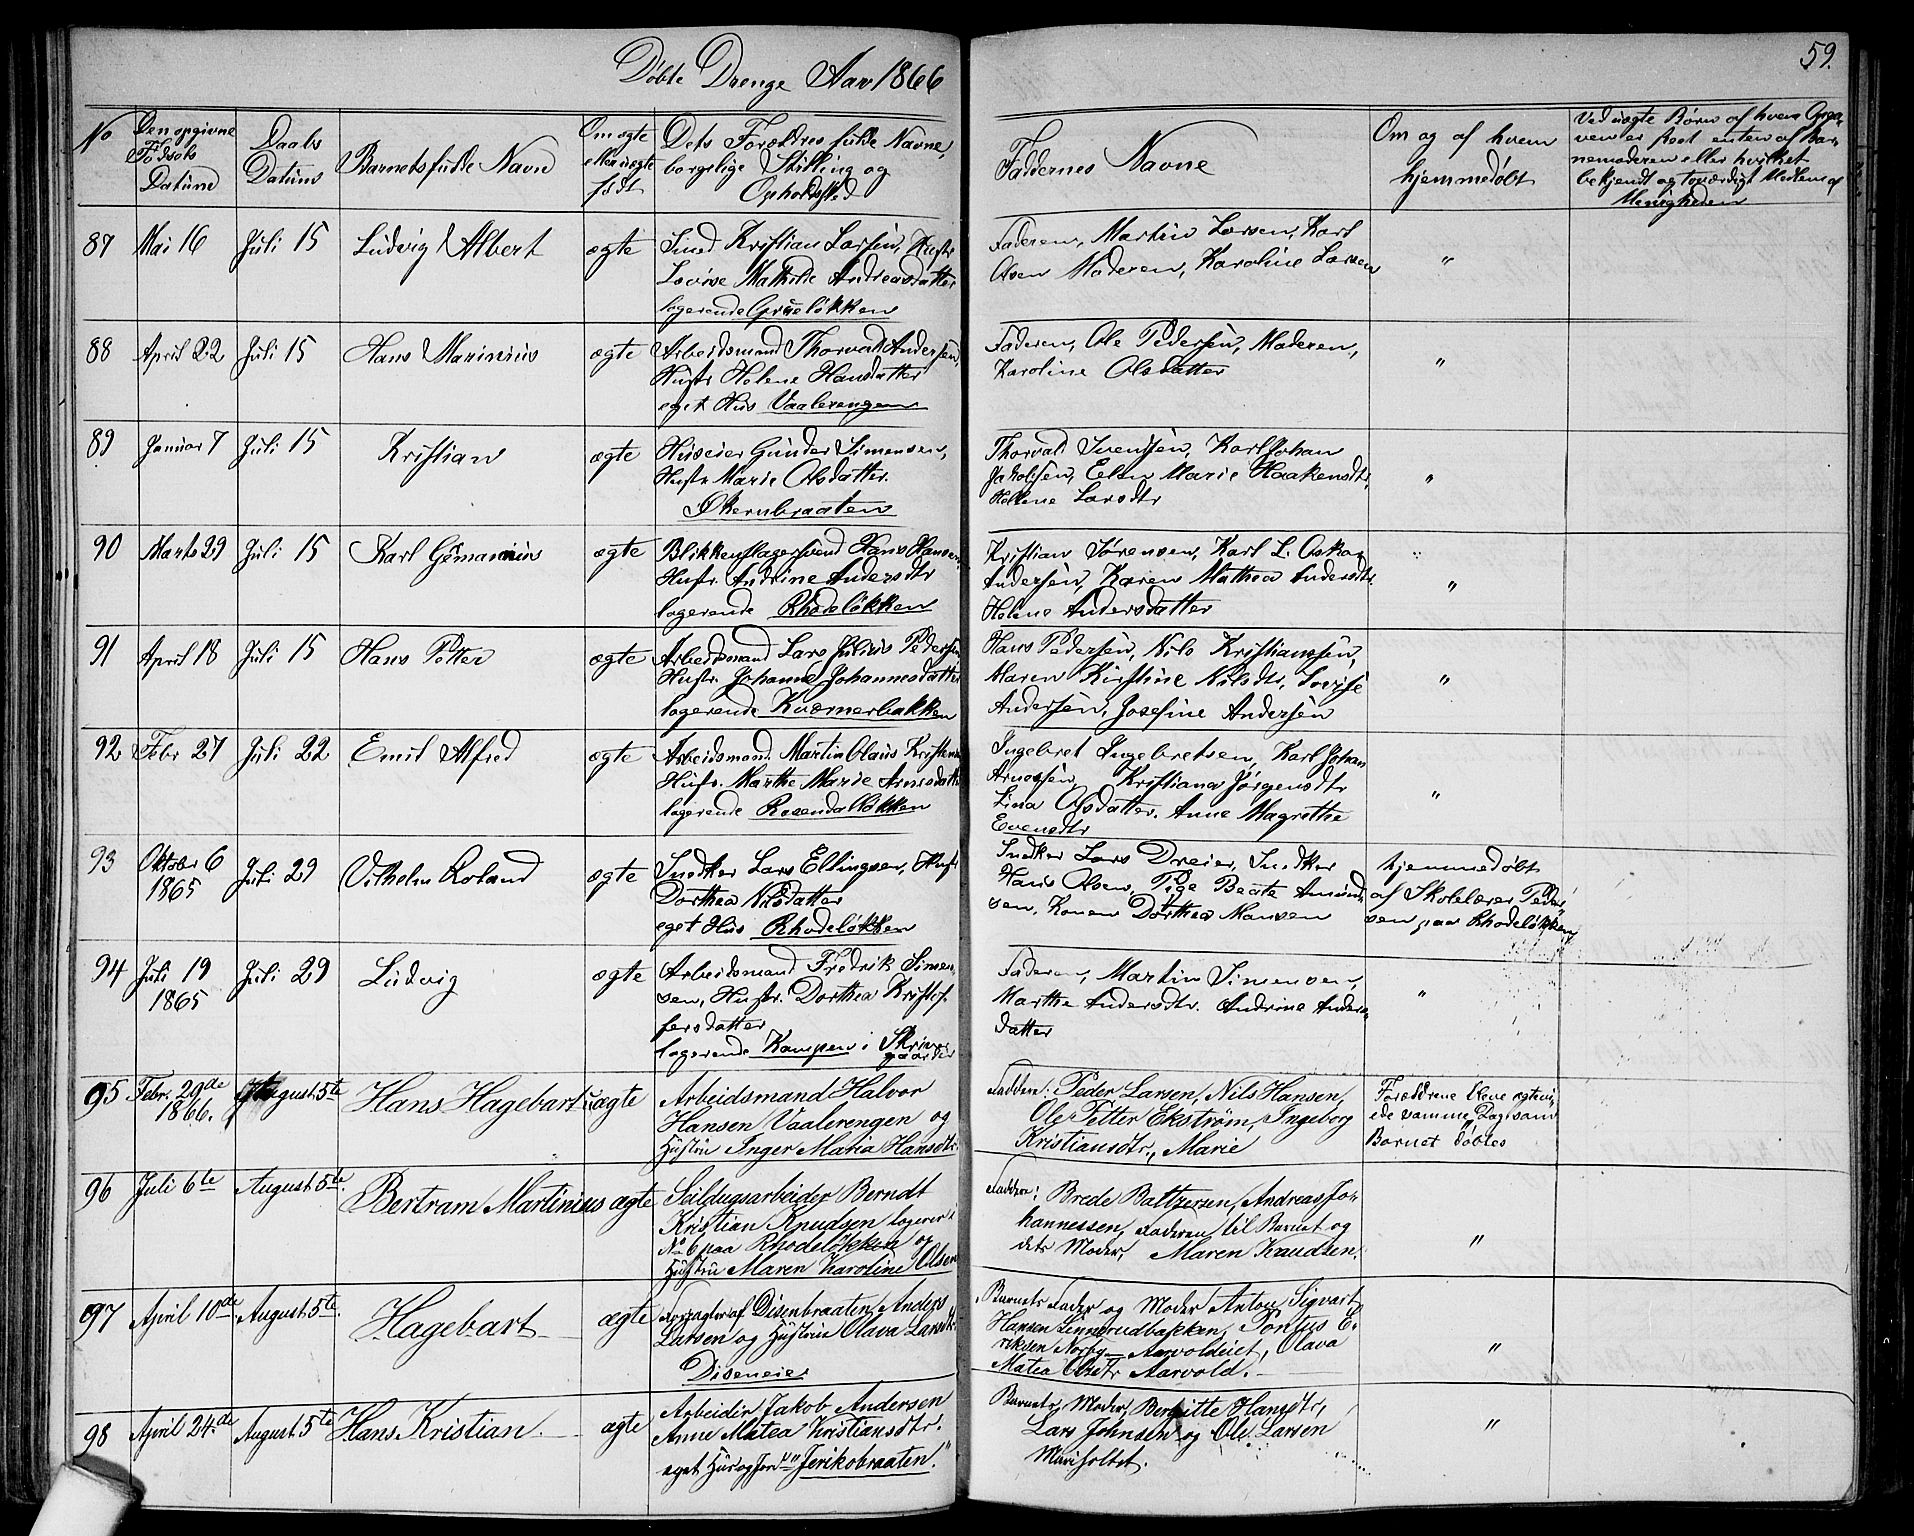 Døbte Drenge Aar 1866
59.
No
Den opgivne
Fødsels
Datum
Daabs
Datum
Barnets fulde Navn
Om ægte
eller uægte
født
Dets Forældres fulde Navne,
borgelige Stilling og
Opholdssted
Faddernes Navne
Om og af hvem
hjemmedøbt
Ved uægte Børn af hvem Opga-
ven er skeet enten af Bar-
nemoderen eller hvilket
bekjendt og troværdigt Medlem af
Menigheden
87 Mai 16 Juli 15 Ludvig Albert ægte
Smed Kristian Larsen, Hustr
Lovise Mathilde Andreasdatter
logerende Grueløkken
Faderen, Martin Larsen, Karl
Olsen Moderen, Karoline Larsen
"
88 April 22 Juli 15 Hans Marinius ægte
Arbeidsmand Thorvald Andersen,
Hustr Helene Hansdatter
eget Hus Vaalerengen
Faderen, Ole Pedersen, Moderen,
Karoline Olsdatter
"
89 Januar 7 Juli 15 Kristian ægte
Huseier Gunder Simensen,
Hustr Marie Olsdatter.
Økernbraaten
Thorvald Svensen, Karl Johan
Jakobsen, Ellen Marie Haakensdtr,
Hellene Larsdtr
"
90 Marts 29 Juli 15 Karl Germanius ægte
Blikkenslagersvend Hans Hansen,
Hustr. Andrine Andersdtr
logerende Rhodeløkken
Kristian Sørensen, Karl L. Oskar
Andersen, Karen Mathea Andersdtr
Helene Andersdatter
"
91 April 18 Juli 15 Hans Petter ægte
Arbeidsmand Lars Julius Pedersen
Hustr. Johanne Johannesdatter
logerende Kværnerbakken
Hans Pedersen, Nils Kristianssen,
Maren Kirstine Nilsdtr, Lovise
Andersen, Josefine Andersen
"
92 Febr 27 Juli 22 Emil Alfred ægte
Arbeidsmand Martin Olaus Kristens
Hustr. Marthe Marie Arnesdatt
logerende Rosendalløkken
Ingebret Ingebretsen, Karl Johan
Arnessen, Kristiana Jørgensdtr
Lina Olsdatter. Anne Magrethe
Evensdtr
"
93 Oktober 6
1865
Juli 29 Vilhelm Roland ægte
Snedker Lars Ellingsen, Hustr
Dorthea Nilsdatter
eget Hus Rhodeløkken
Snedker Lars Dreier, Snedker
Hans Olsen, Pige Beate Amund-
sen, Konen Dorthea Hansen
hjemmedøbt
af Skolelærer Peder-
sen paa Rhodeløkken
94 Juli 19
1865
Juli 29 Ludvig ægte
Arbeidsmand Fredrik Simen-
sen, Hustr. Dorthea Kristof-
fersdatter
logerende Kampen i Skriver
gaarden
Faderen, Martin Simensen,
Marthe Andersdtr. Andrine Anders-
datter
"
95 Febr. 20de
1866.
August 5te Hans Hagebart uægte
Arbeidsmand Halvor
Hansen Vaalerengen og
Hustru Inger Maria Hansdtr.
Faddere: Peder Larsen, Nils Hansen,
Ole Petter Ekstrøm, Ingeborg
Kristiansdtr., Marie
Forældrene bleve ægtevi-
ede samme Dag som
Barnet døbtes
96 Juli 6te August 5te Bertram Martinius ægte
Seildugsarbeider Berndt
Kristian Knudsen logerer i
No 6 paa Rhodeløkken og
Hustru Maren Karoline Olsen
Faddere: Brede Baltzersen, Andreas Jo-
hannessen, Faderen til Barnet og
dets Moder, Maren Knudsen.
"
97 April 10de August 5te Hagebart ægte
Forpagter af Disenbraaten, Anders
Larsen og Hustru Olava Larsdtr
Diseneier
Barnets Fader og Moder Anton Sigvart
Hansen Linnerudbakken, Pontus E-
riksen Norby Aarvoldeiet, Olava
Matea Olsdtr Aarvold.
"
98 April 24de August 5te Hans Kristian. ægte
Arbeider Jakob Andersen
Anne Matea Kristiansdtr.
eget Hus og Jord "Jerikobraaten."
Barnets Moder, Bergitte Hansdtr,
Lars Johnsen og Ole Larsen
Mariholtet.
"